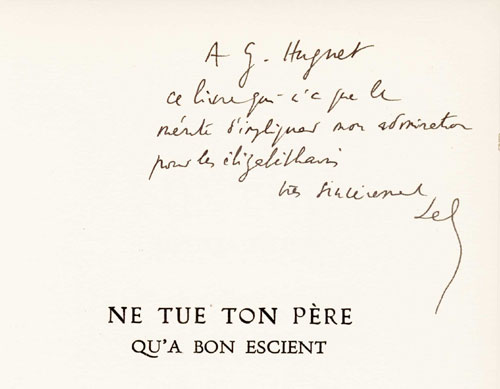 A G. Hugnet
ce livre qui n'a que le
mérite d'impliquer mon admiration
pour les élizabéthains
très sincèrement
NE TUE TON PÈRE
QU'A BON ESCIENT